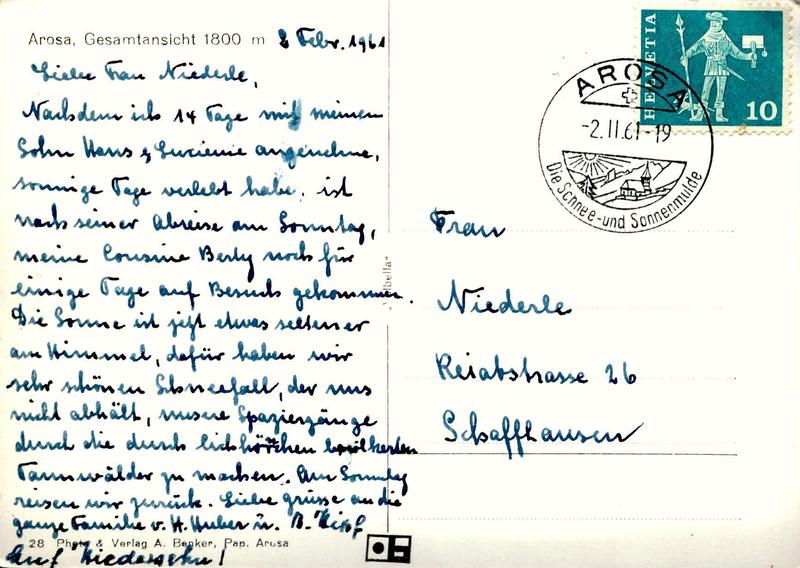 Arosa, Gesamtansicht 1800 m
2 Febr. 1961
Liebe Frau Niederle,
Nachdem ich 14 Tage mit meinem
Sohn Hans & Lucienne angenehme,
sonnige Tage verlebt habe, ist
nach seiner Abreise am Sonntag,
meine Cousine Berty noch für
einige Tage auf Besuch gekommen.
Die Sonne ist jetzt etwas seltener
am Himmel, dafür haben wir
sehr schönen Schneefall, der uns
nicht abhält, unsere Spaziergänge
durch die durch Eichhörchen bevölkerten
Tannwälder zu machen. Am Sonntag
reisen wir zurück. Liebe grüsse an die
ganze Familie v. H. Huber u. B.
Auf Wiedersehn!
28 Photo & Verlag A. Benker, Pap. Arosa
HELVETIA
10
AROSA
-2.II.61-19
Die Schnee- und Sonnenmulde
Frau
Niederle
26
Schaffhausen